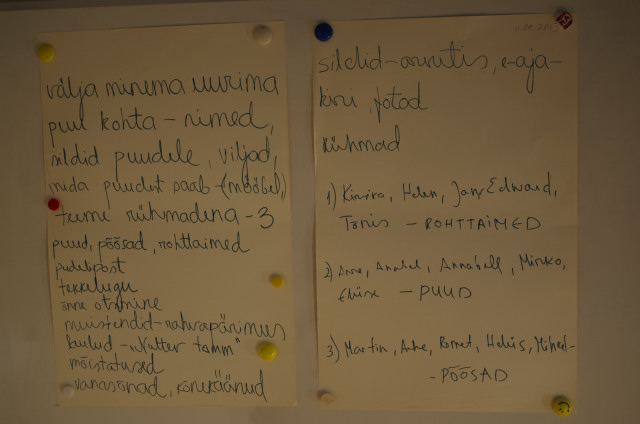 välja minema uurima
puu kohta - nimed,
sildid puudele, viljad,
mida puudest saab - (mööbel,)
teeme rühmadena - 3
puud, põõsad, rohttaimed
pudelipost
tekkelugu
õnne otsimine
muistendid - rahvapärimus
laulud - "Kutter tamm"
mõistatused
vanasõnad, kõnekäänud
sildid - arvutis, e-aja-
kiri, fotod
Rühmad
1) Helen, Jan Edward,
Tõnis - ROHTTAIMED
2) Anna, Annabel, Annabell, Mirko,
- PUUD
3) Martin, Romet,
- PÕÕSAD